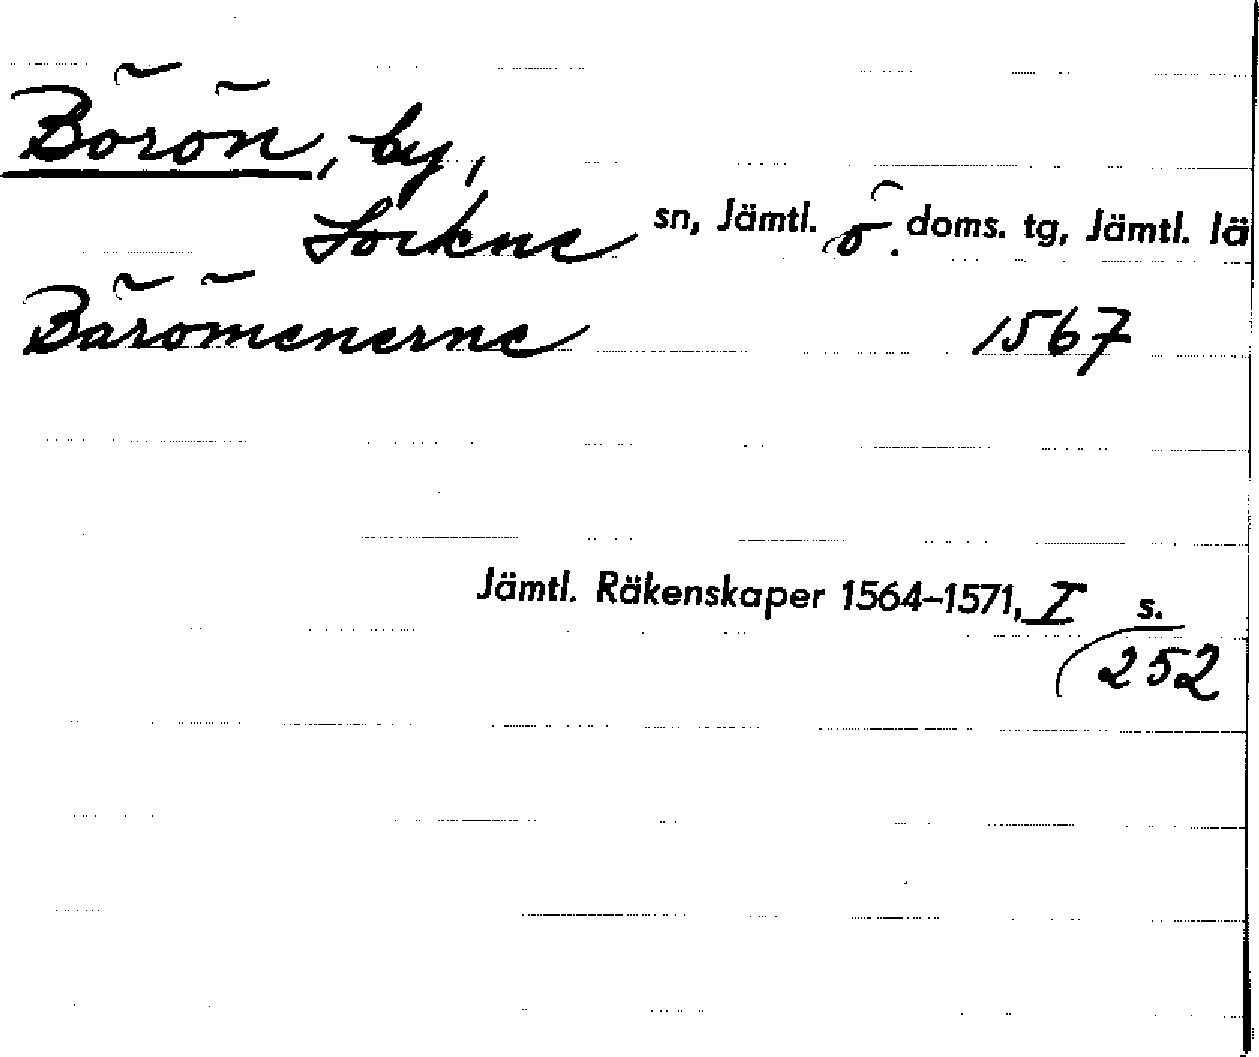 Börön, by,
Lockne sn, Jämtl. ö. doms. tg, Jämtl. lä
Bärömenerne 1567
Jämtl. Räkenskaper 1564–1571, I s.
252